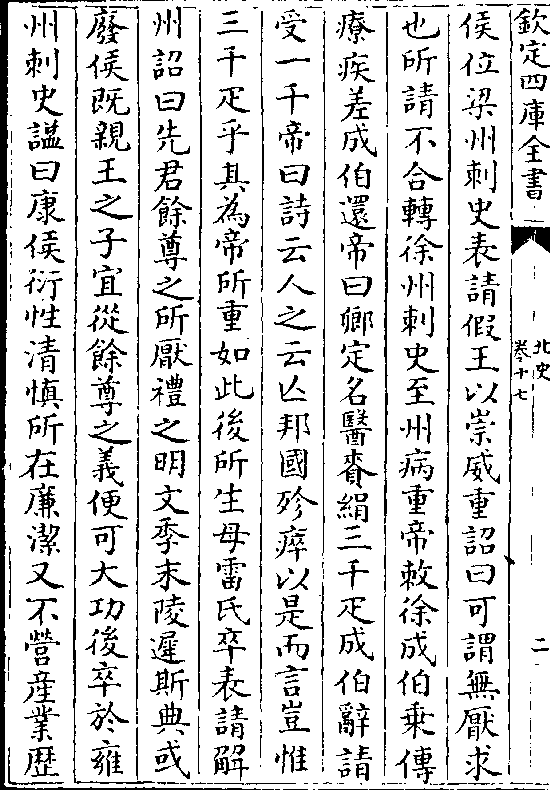 欽定四庫全書
北史
卷十七
二
侯位梁州刺史表請假王以崇威重詔曰可謂無厭求
也所請不合轉徐州刺史至州病重帝敕徐成伯乘傳
療疾差成伯還帝曰卿定名醫賚絹三千疋成伯辭請
受一千帝曰詩云人之云亡邦國殄瘁以是而言豈惟
三千疋乎其為帝所重如此後所生母雷氏卒表請解
州詔曰先君餘尊之所厭禮之明文季末陵遲斯典或
廢侯既親王之子宜從餘尊之義便可大功後卒於雍
州刺史謚曰康侯衍性清慎所在廉潔又不營產業歷